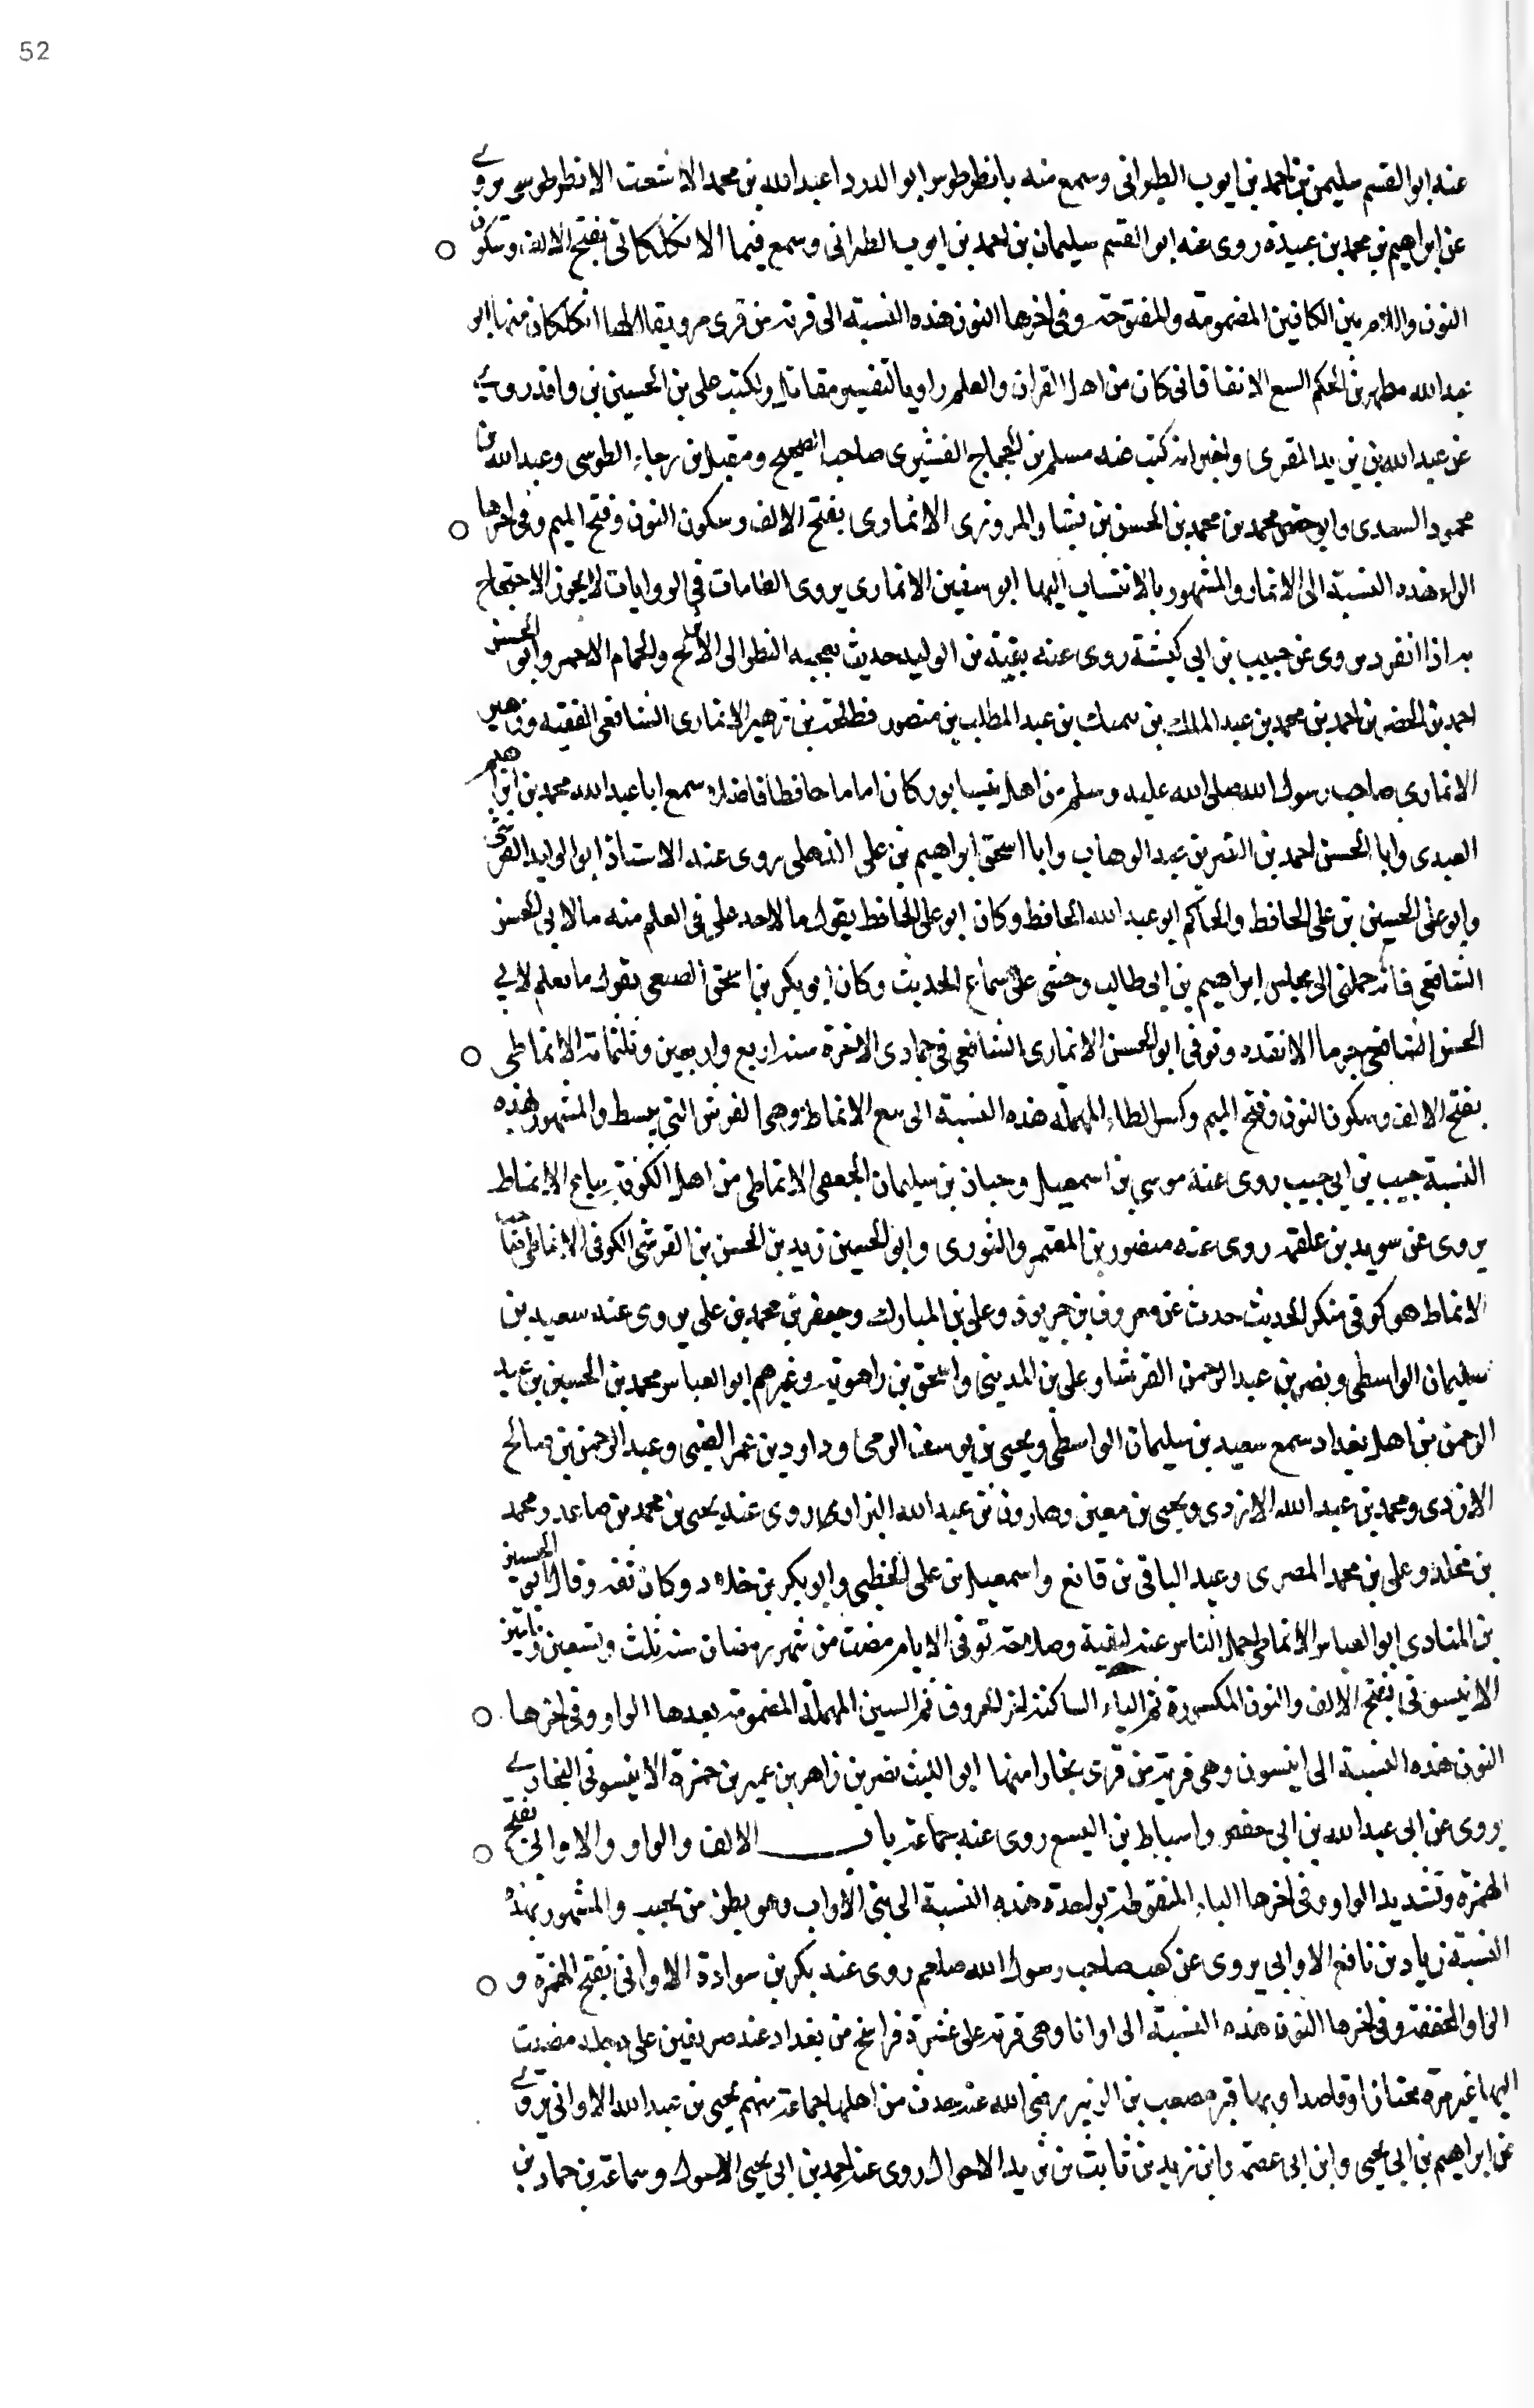 52
عنه ابو القسم سليمن بن احمد بن ايوب الطبراني وسمع منه بانطرطوس ابو الدرداعبد الله بن محمد الاشعث الانطرطوسي يروى
عن ابراهيم بن محمد بن عبيدة روى عنه ابو القسم سليمان بن احمد بن ايوب الطبراني وسمع فيما الانكلكاني بفتح الالف وسكون
النون واللام بين الكافين المضمومة والمفتوحة وفي اخرها النون هذه النسبة الى قرية من قرى مرو يقال لها انكلكان منها ابو
عبد الله مطهر بن الحكم السع الانقاقاني كان من اهل القران والعلم راويا لتفسير مقاتل ولكتب علي بن الحسين بن واقد روى
عن عبد الله بن يزيد المقرى واخبر انه كتب عنه مسلم بن الحجاج القشيرى صاحب الصحيح ومقبل بن رجاء الطوسي وعبد الله بن
محمود السعدى وابو محمد بن محمد بن الحسن بن بشار المروزى الانمارى بفتح الالف وسكون النون وفتح الميم وفي اخرها
الراء هذه النسبة الى الانمار والمشهور بالانتساب اليها ابو سفين الانمارى يروى الطامات في الروايات لا يجوز الاحتجاج
به اذا انفرد يروى عن حبيب بن ابي كبشة روى عنه بقية بن الوليد حديث يعجبه النظر الى الاترج والحمام الاحمر وابو الحسن
احمد بن الخضر بن احمد بن محمد بن عبد الملك بن سماك بن عبد المطلب بن منصور بن طلحة بن زهير الانمارى الشافعي الفقيه وزهير
الانمارى صاحب رسول الله صلى الله عليه وسلم من اهل نيسابور كان اماما حافظا فاضلا سمع ابا عبد الله محمد بن ابراهيم
العبدى وابا الحسن احمد بن النضر بن عبد الوهاب وابا اسحق ابراهيم بن علي الذهلي روى عنه الاستاذ ابو الوليد القرشي
وابو علي الحسين بن علي الحافظ والحاكم ابو عبد الله الحافظ وكان ابو علي الحافظ يقول ما لاحد علي في العلم منه ما لابي الحسن
الشافعي فانه حملني الى مجلس ابراهيم بن ابي طالب وحثني على سماع الحديث وكان ابو بكر بن اسحق الصبغي يقول ما نعلم لابي
الحسن الشافعي جرما الا تفقده وتوفي ابو الحسن الانمارى الشافعي في جمادى الاخرة سنة اربع واربعين وثلثمائة الانماطي
بفتح الالف وسكون النون وفتح الميم وكسر الطاء المهملة هذه النسبة الى بيع الانماط وهي الفرش التي يبسط والمشهور بهذه
النسبة حبيب بن ابي حبيب روى عنه موسى بن اسمعيل وحبان بن سليمان الجعفي الانماطي من اهل الكوفة بياع الانماط
يروى عن سويد بن علقمة روى عنه منصور بن المعتمر والثورى وابو الحسين زيد بن الحسن بن القرشي الكوفي الانماطي صاحب
الانماط هو كوفي منكر الحديث حدث عن معروف بن خربوذ وعلي بن المبارك وجعفر بن محمد بن علي يروى عنه سعيد بن
سليمان الواسطي ونصر بن عبد الرحمن القرشا وعلي بن المديني واسحق بن راهويه وغيرهم ابو العباس محمد بن الحسين بن عبد
الرحمن من اهل بغداد سمع سعيد بن سليمان الواسطي ويحيى بن يوسف الرمي وداود بن عمر الضبي وعبد الرحمن بن صالح
الازدى ومحمد بن عبد الله الازدى ويحيى بن معين وهارون بن عبد الله البزار روى عنه يحيى بن محمد بن صاعد ومحمد
بن مخلد وعلي بن محمد المصرى وعبد الباقي بن قانع واسمعيل بن علي الخطبي وابو بكر بن خلاد وكان ثقة وقال ابو الحسين
بن المنادى ابو العباس الانماطي حمل الناس عنه لثقة وصلاحه توفي لايام مضت من شهر رمضان سنة ثلث وتسعين ومايتين
الانيسوني بفتح الالف والنون المكسورة ثم الياء الساكنة اخر الحروف ثم السين المهملة المضمومة بعدها الواو وفي اخرها
النون هذه النسبة الى انيسون وهي قرية من قرى بخارا منها ابو الليث نصر بن زاهر بن عمير بن حمزة الانيسوني البخارى
يروى عن ابي عبد الله بن ابي حفص واسباط بن اليسع روى عنه جماعة باب الالف والواو الاوابي بفتح
الهمزة وتشديد الواو وفي اخرها الباء المنقوطة بواحدة هذه النسبة الى بني الاواب وهو بطن من تجيب والمشهور بهذه
النسبة زياد بن نافع الاوابي يروى عن كعب صاحب رسول الله صلعم روى عنه بكر بن سوادة الاواني بفتح الهمزة و
الواو المخففة وفي اخرها النون هذه النسبة الى اوانا وهي قرية على عشرة فراسخ من بغداد عند صريفين على دجله مضيت
اليها غير مرة مجتازا وقاصدا وبها قبر مصعب بن الزبير رضي الله عنه حدث من اهلها جماعة منهم يحيى بن عبد الله الاواني يروى
عن ابراهيم بن ابي يحيى وابن ابي عصمة وابن زيد بن ثابت بن يزيد الاحوال روى عنه احمد بن ابي يحيى الاحول وسماعة بن حماد بن